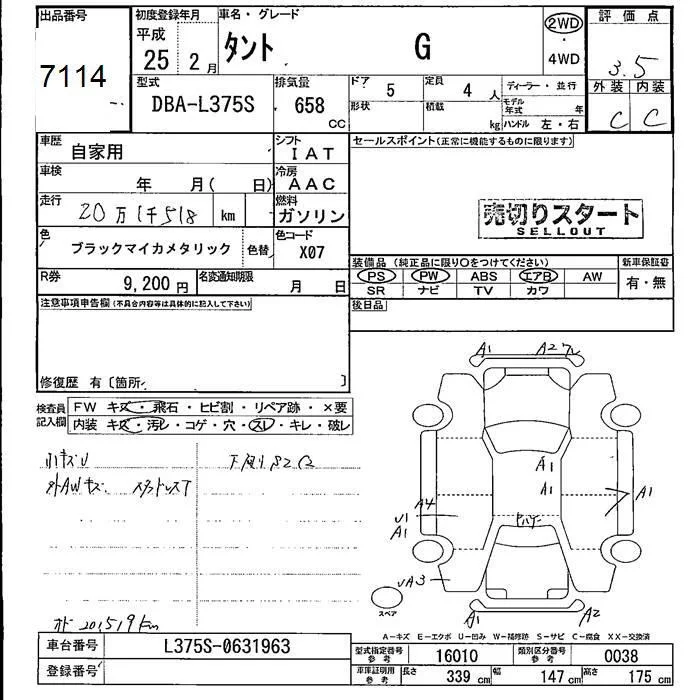 出品番号
7114
初度登録年月
平成
25年2月
車名・グレード
タント G
2WD
・
4WD
評価点
3.5
外装 内装
C C
型式
DBA-L375S
排気量
658
CC
ドア 5
定員 4 人
形状
積載 kg
ディーラー・並行
モデル年式 年
ハンドル 左・右
車歴
自家用
シフト
IAT
車検
年 月( 日)
冷房
AAC
走行
20万1千518 km
燃料
ガソリン
色
ブラックマイカメタリック
色替
色コード
X07
R券
9,200円
名変通知期限
月 日
セールスポイント(正常に機能するものに限ります)
売切りスタート
SELLOUT
装備品(純正品に限り○をつけてください)
PS PW ABS エアB AW
SR ナビ TV カワ
新車保証書
有・無
後日品
注意事項申告欄(不具合内容等は具体的に記入して下さい)
修復歴 有〔箇所 〕
検査員
記入欄
FW キズ・飛石・ヒビ割・リペア跡・×要
内装 キズ・汚レ・コゲ・穴・スレ・キレ・破レ
小キズU
外AWキズ
下廻りS2C2
オド 201519km
A1 A2
A1
A1
A1
A4
U1
A1
UA3
A1 A2
スペア
A-キズ E-エクボ U-凹み W-補修跡 S-サビ C-腐食 XX-交換済
車台番号
L375S-0631963
登録番号
型式指定番号
参考
16010
類別区分番号
参考
0038
車庫証明用
参考
長さ 339 cm
幅 147 cm
高さ 175 cm